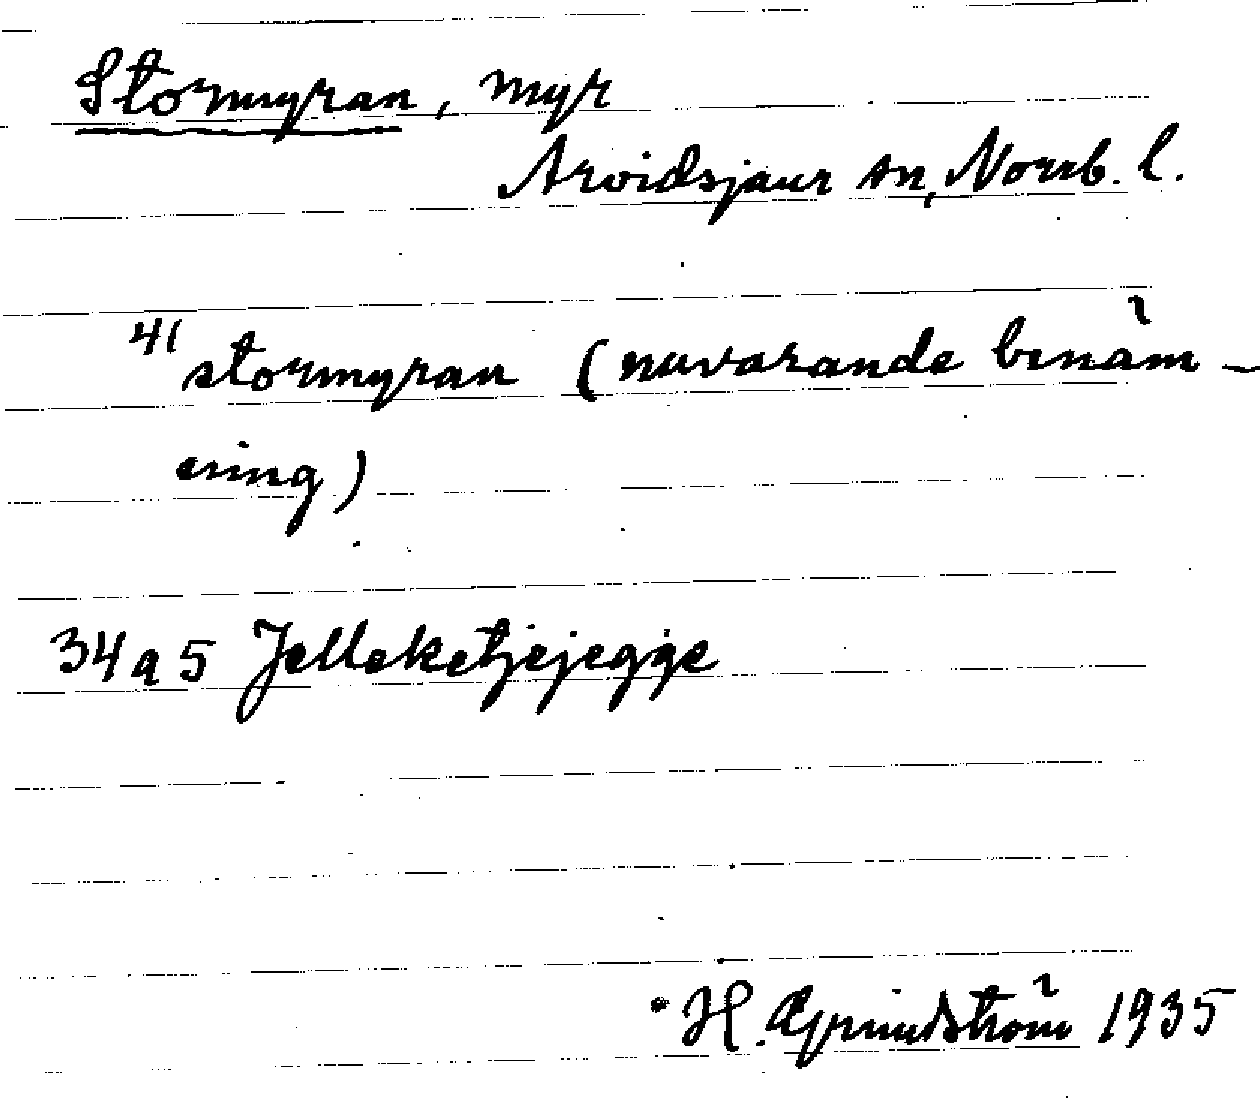 Stormyran, myr
Arvidsjaur sn, Norrb. l.
41 stormyran (nuvarande benäm-
ning)
34a5 Jelleketjejegge
H. Grundström 1935